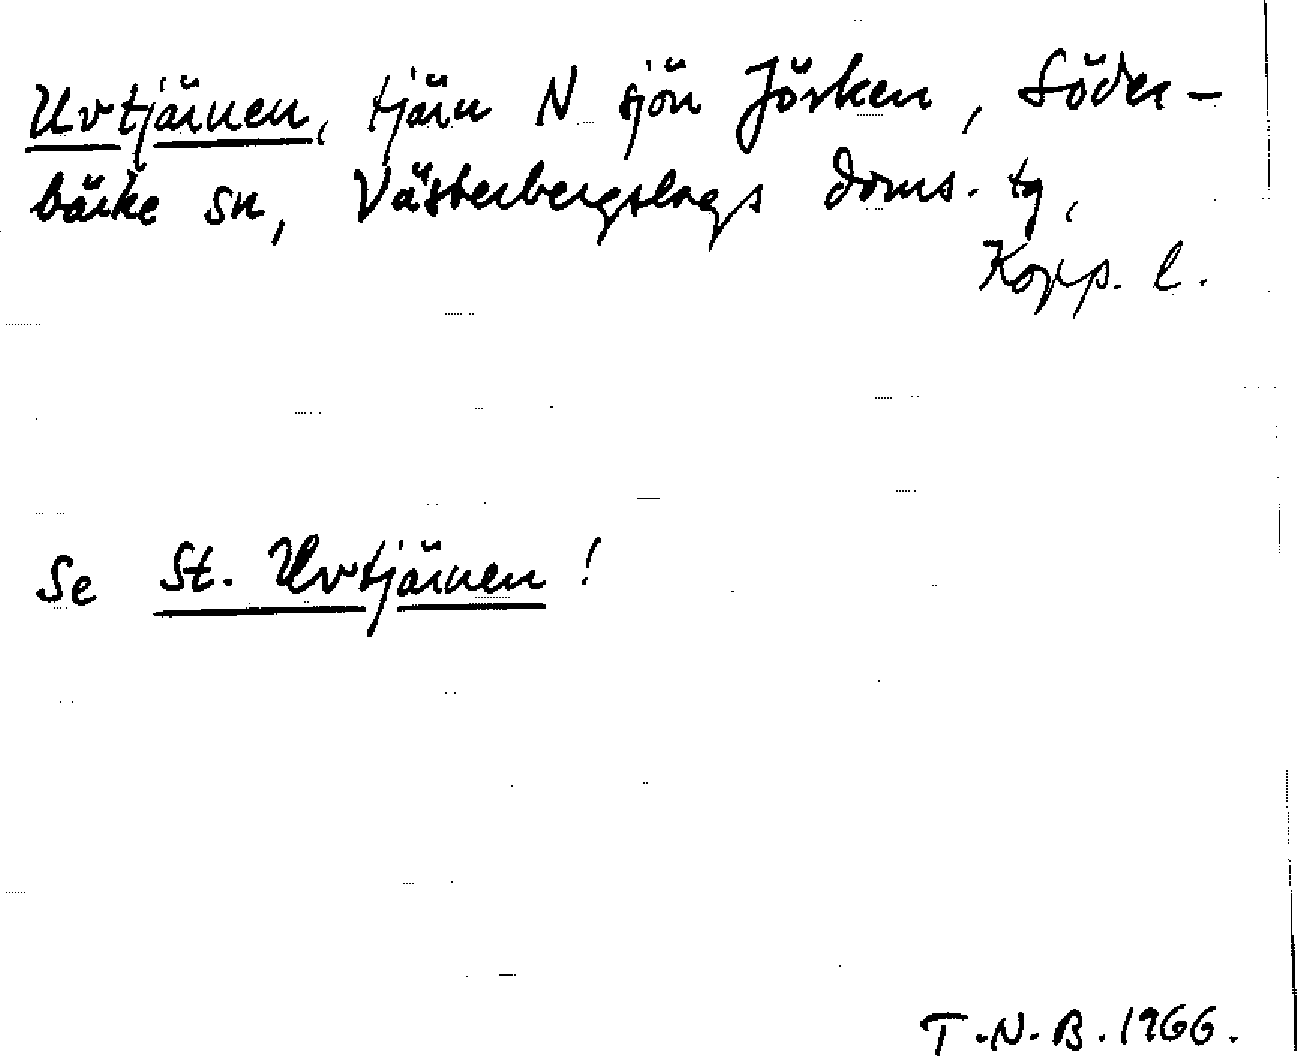 Urtjärnen, tjärn N sjön Jörken, Söder-
bärke sn, Västerbergslags doms. tg,
Kopp. l.
Se St. Urtjärnen!
T.N.B. 1966.